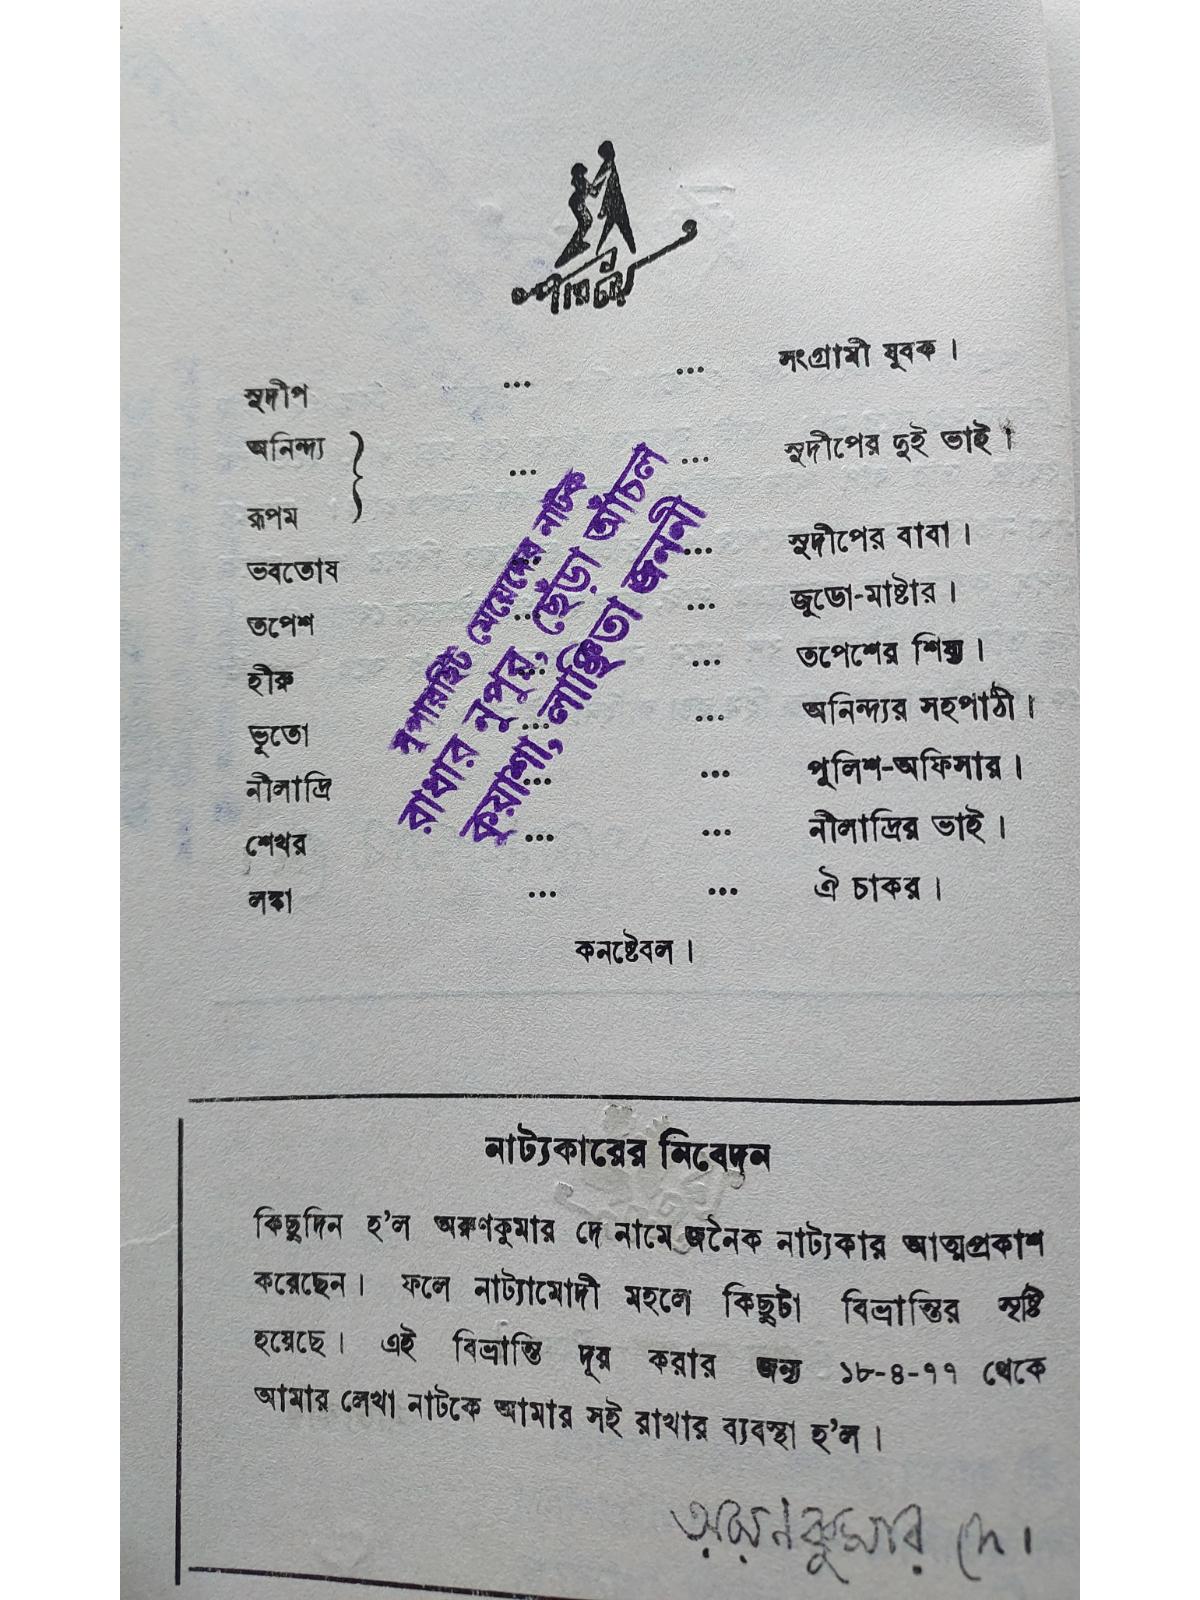 পরিচয়
সুদীপ ... ... সংগ্রামী যুবক ।
অনিন্দ্য } ... ... সুদীপের দুই ভাই ।
রূপম
ভবতোষ ... সুদীপের বাবা ।
তপেশ ... ... জুডো-মাষ্টার ।
হীরু ... ... তপেশের শিষ্য ।
ভূতো ... ... অনিন্দ্যর সহপাঠী ।
নীলাদ্রি ... ... পুলিশ-অফিসার ।
শেখর ... ... নীলাদ্রির ভাই ।
লঙ্কা ... ... ঐ চাকর ।
কনষ্টেবল ।
সুপারহিট মেয়েদের নাটক
রাধার নুপুর, ছেঁড়া আঁচল
কুয়াশা, লাঞ্ছিতা জননী
নাট্যকারের নিবেদন
কিছুদিন হ'ল অরুণকুমার দে নামে জনৈক নাট্যকার আত্মপ্রকাশ
করেছেন । ফলে নাট্যামোদী মহলে কিছুটা বিভ্রান্তির সৃষ্টি
হয়েছে । এই বিভ্রান্তি দূর করার জন্য ১৮-৪-৭৭ থেকে
আমার লেখা নাটকে আমার সই রাখার ব্যবস্থা হ'ল ।
অরুণকুমার দে ।